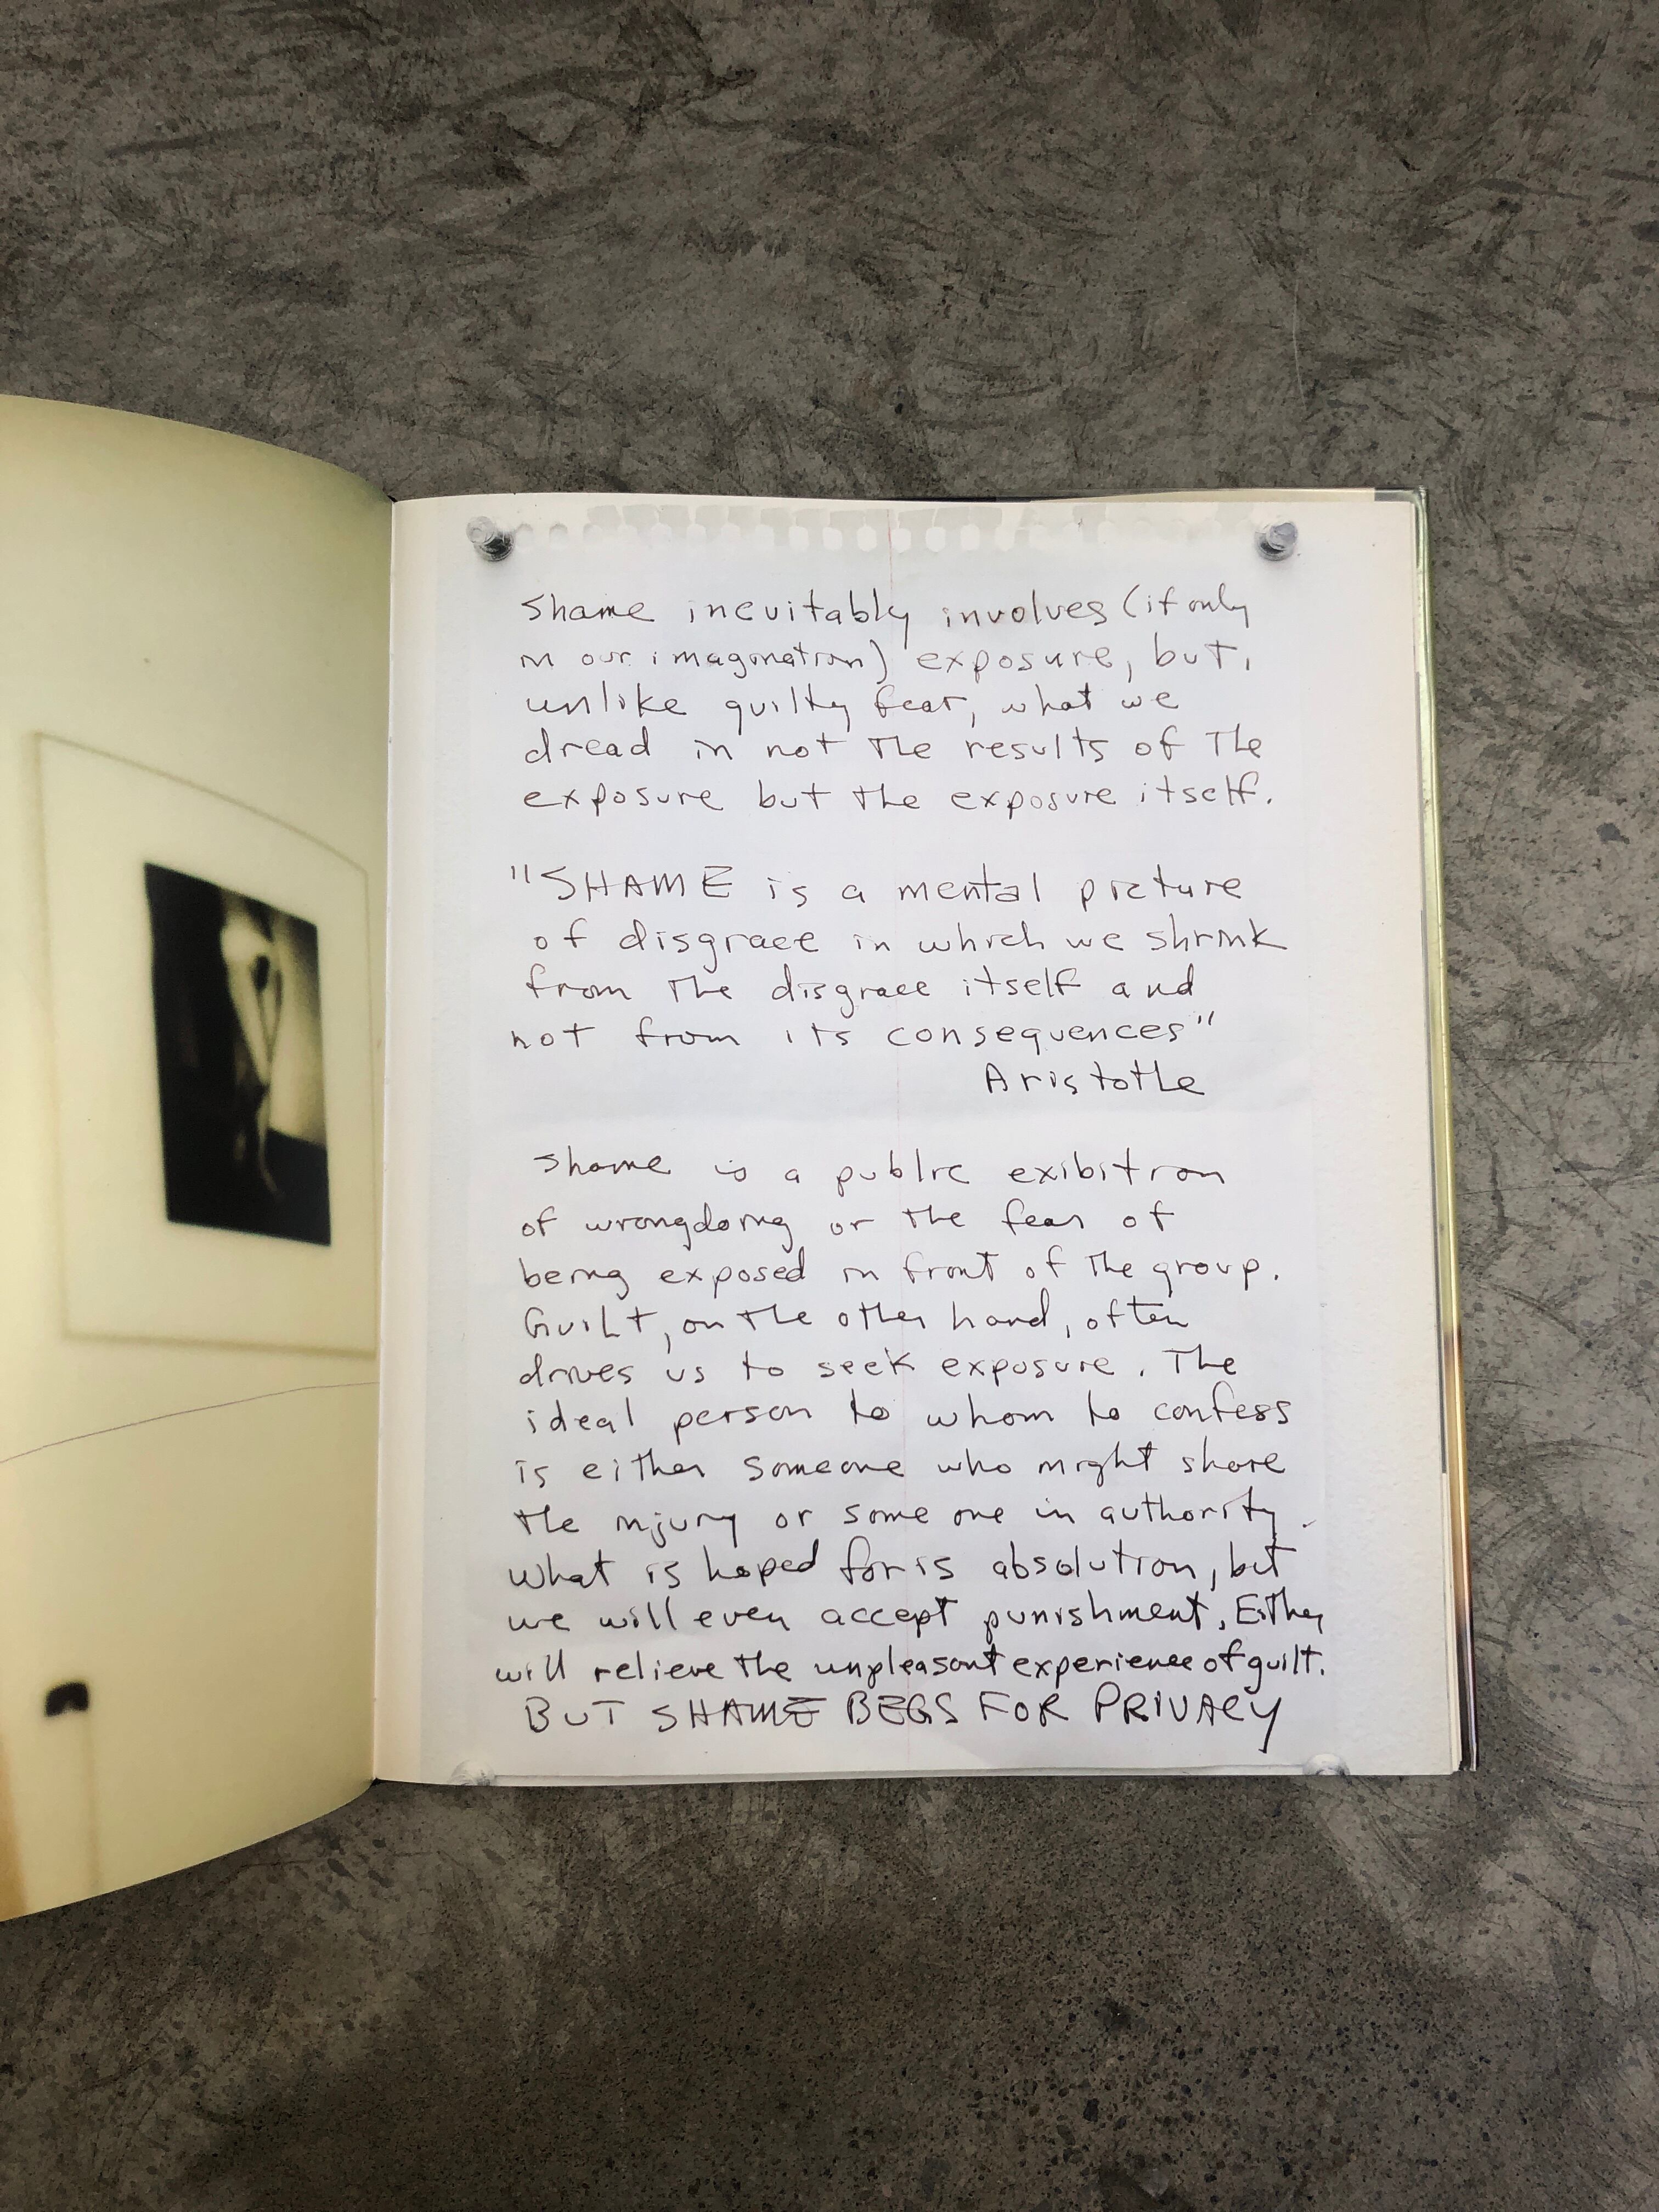 Shame inevitably involves (if only
in our imagination) exposure, but,
unlike guilty fear, what we
dread in not the results of the
exposure but the exposure itself.
"SHAME is a mental picture
of disgrace in which we shrink
from the disgrace itself and
not from its consequences"
Aristotle
Shame is a public exibition
of wrongdoing or the fear of
being exposed in front of the group.
Guilt, on the other hand, often
drives us to seek exposure. The
ideal person to whom to confess
is either someone who might share
the injury or some one in authority.
What is hoped for is absolution, but
we will even accept punishment. Either
will relieve the unpleasant experience of guilt.
BUT SHAME BEGS FOR PRIVACY